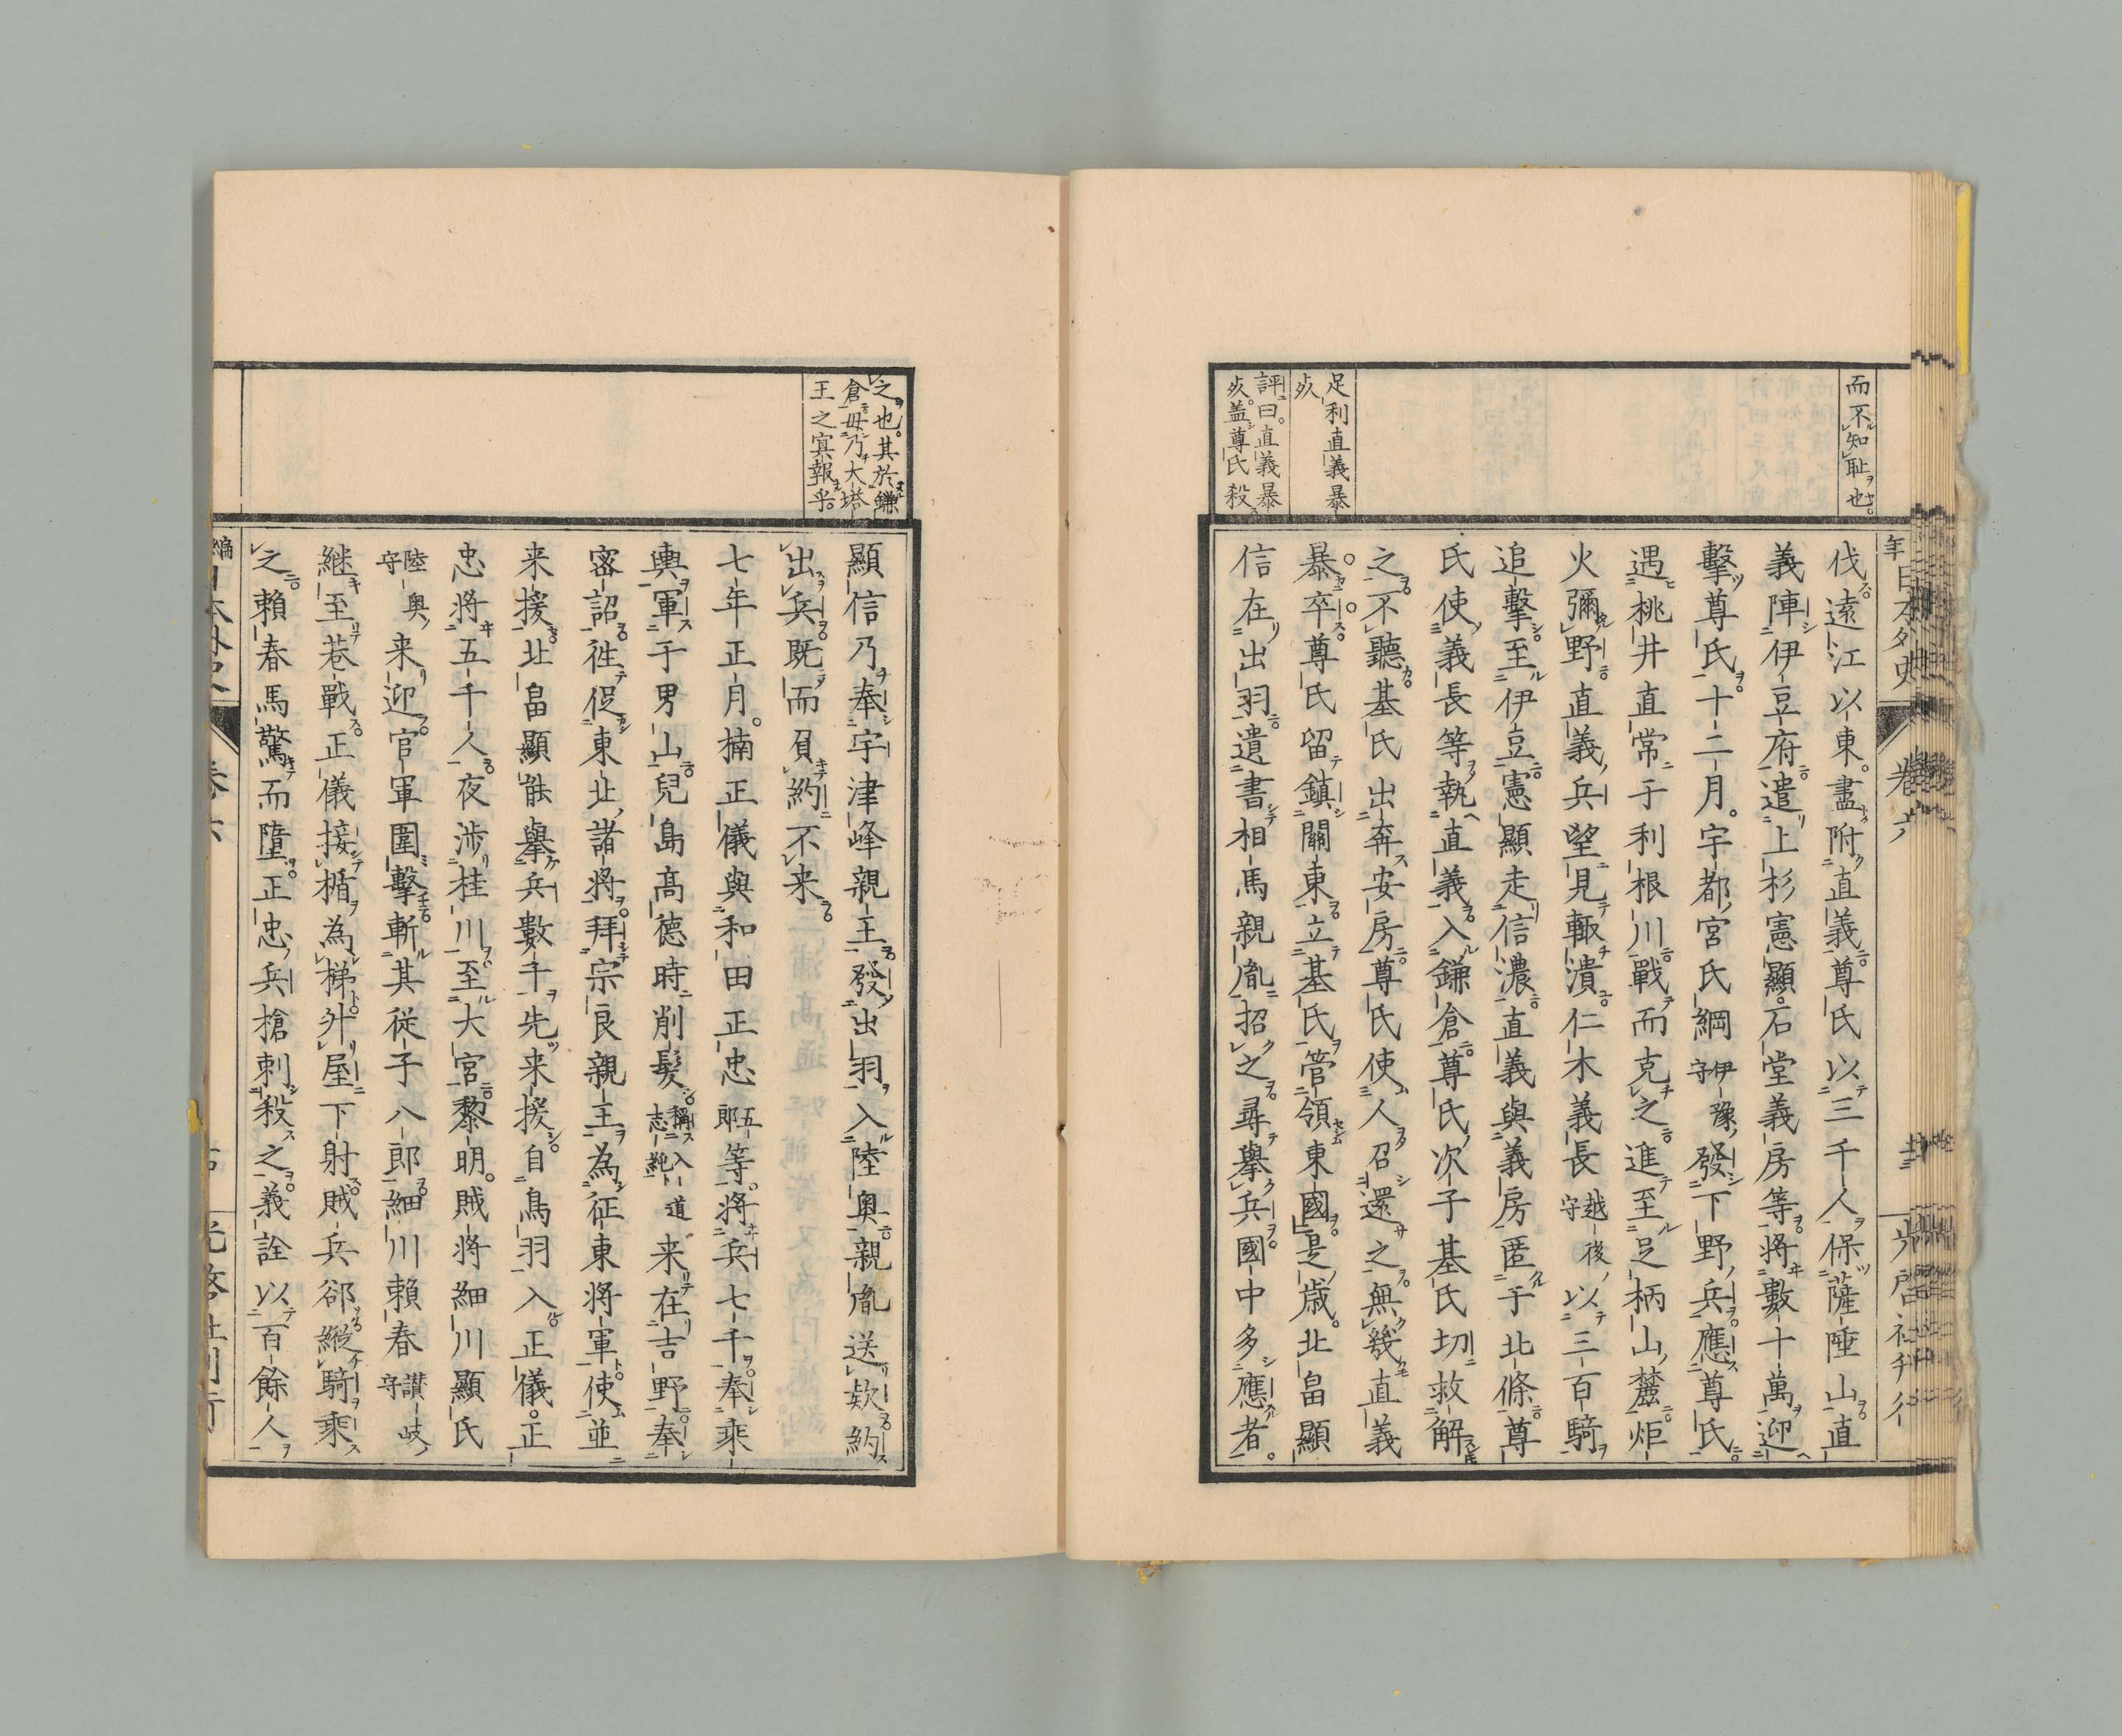 而不知耻也。
足利直義暴
死
評曰。直義暴
死。蓋尊氏殺
伐遠江以東。盡附直義。尊氏以三千人保薩埵山。直
義陣伊豆府。遣上杉憲顯。石堂義房等。將數十萬迎
擊尊氏。十二月。宇都宮氏綱伊豫守發下野兵。應尊氏。
遇桃井直常于利根川。戰而克之。進至足柄山麓。炬
火彌野。直義兵望見輙潰。仁木義長越後守以三百騎
追擊至伊豆。憲顯走信濃。直義與義房匿于北條。尊
氏使義長等執直義。入鎌倉。尊氏次子基氏切救解
之。不聽。基氏出奔安房。尊氏使人召還之。無幾直義
暴卒。尊氏留鎮關東。立基氏管領東國。是歳。北畠顯
信在出羽。遺書相馬親胤招之。尋擧兵。國中多應者。
之也。其於鎌
倉毋乃大塔
王之寃報乎。
顯信乃奉宇津峰親王發出羽入陸奥。親胤送欵約
出兵。既而負約不来。
七年正月。楠正儀與和田正忠五郎等。將兵七千。奉乘
輿軍于男山。兒島髙德時削髮。稱入道志純来在吉野。奉
密詔徃促東北諸將。拜宗良親王為征東將軍。使並
来援。北畠顯能擧兵數千先来援。自鳥羽入。正儀。正
忠將五千人。夜渉桂川。至大宮。黎明。賊將細川顯氏
陸奥守来迎。官軍圍擊。斬其從子八郎。細川賴春讃岐守
継至。巷戰。正儀接楯為梯。升屋下射。賊兵郤。縱騎乘
之。賴春馬驚而墮。正忠兵槍刺殺之。義詮以百餘人